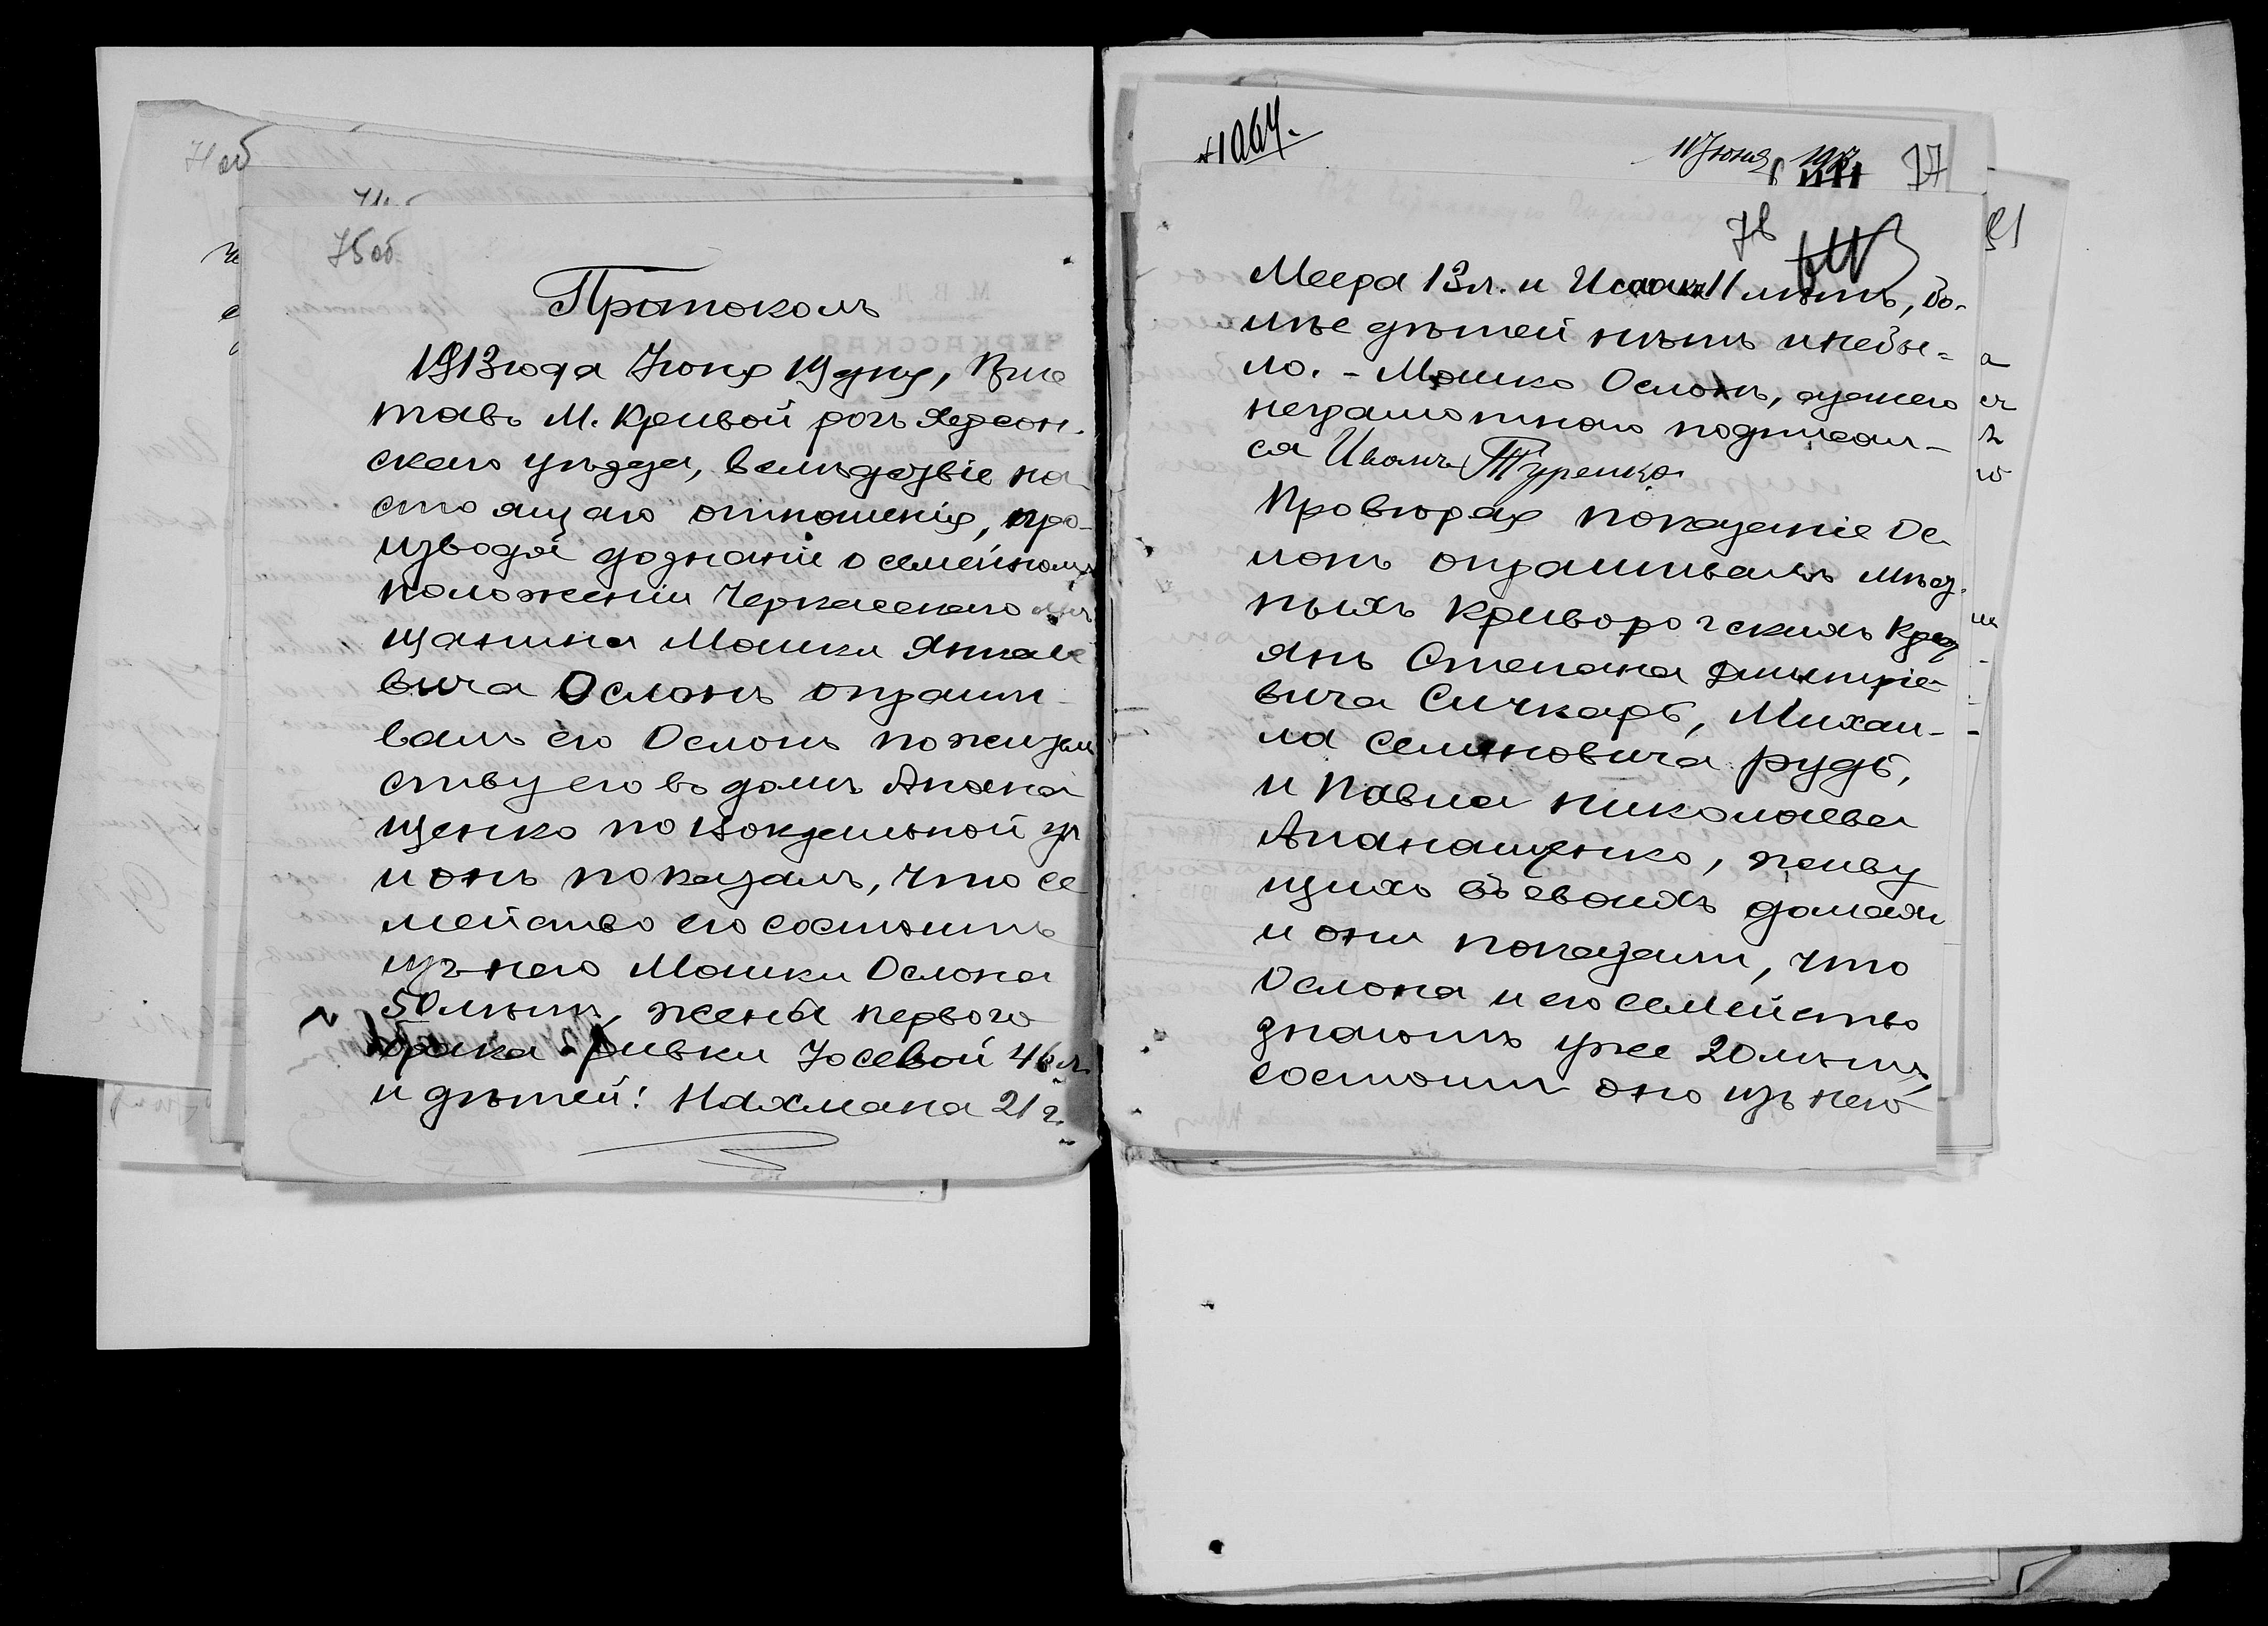 75об.
Протоколъ
1913 года Іюня 19 дня, При
ставъ М. Кривой рогъ Херсон-
скаго уѣзда, вслѣдствіе на
стоящаго отношенія, про-
изводя дознаніе о семейномъ
положеніи Черкасскаго мѣ
щанина Мошки Янкеле
вича Ослонъ опраши-
валъ его Ослонъ по жител
ству его въ домѣ Апана
щенко по Вокзальной ул
и онъ показалъ, что се
мейство его состоитъ
изъ него Мошки Ослона
50 лѣтъ, жены первого
брака Ривки Іосевой 46 л.
и дѣтей: Нахмана 21 г.
1064.
11 Іюня
77
76
Меера 13 л. и Исаакъ 11 лѣтъ, бо-
лѣе дѣтей нѣтъ и небы-
ло. - Мошко Ослонъ, а за него
неграмотного подписал-
ся Иванъ Туренко
Провѣряя показаніе Ос
лонъ опрашивалъ мѣст.
ныхъ Криворогскихъ Крест
янъ Степана Дмитріе
вича Сичкарь, Михаи-
ла Семеновича Рудь,
и Павла Николаева
Апанащенко, живу
щихъ въ своихъ домахъ
и они показали, что
Ослона и его семейство
знаютъ уже 20 лѣтъ,
состоитъ оно изъ него